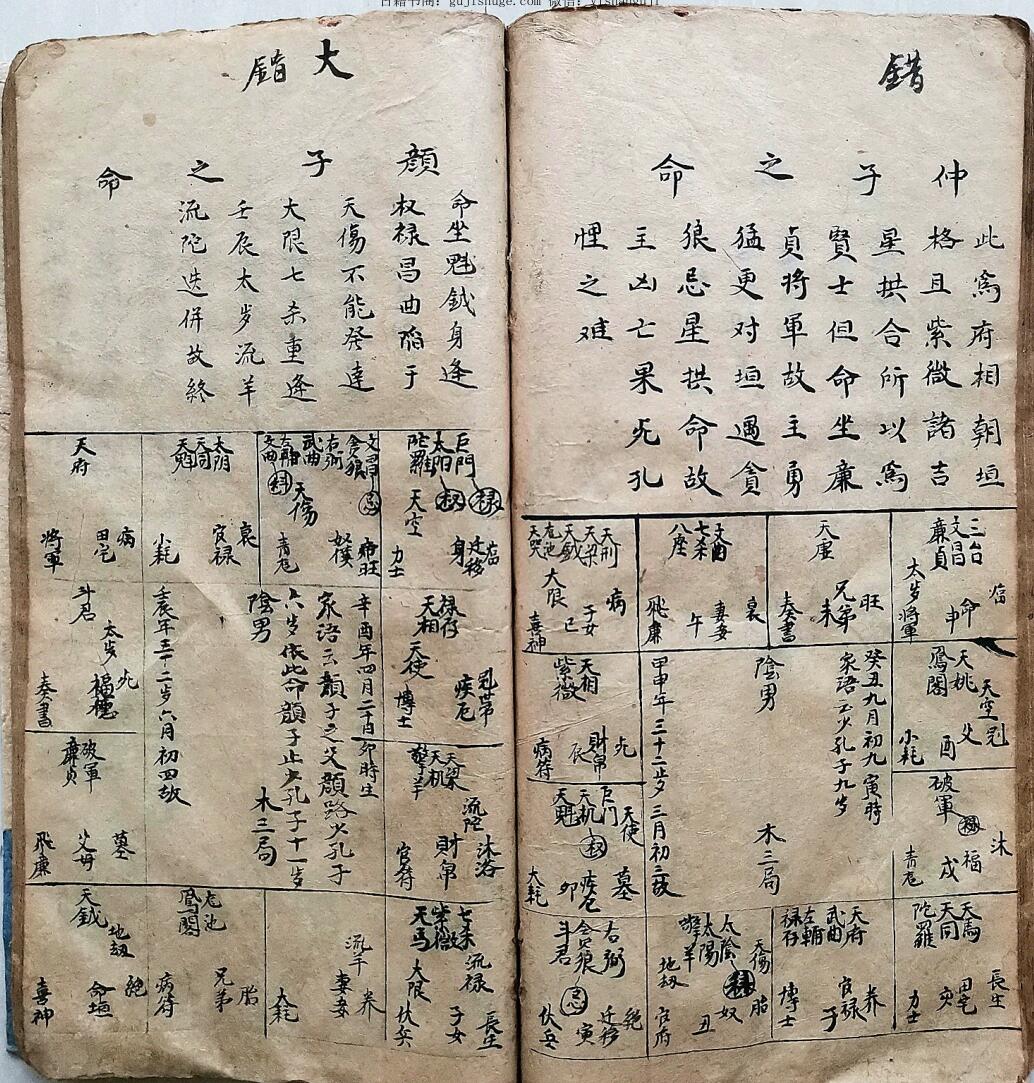 古籍书阁：gujishuge.com 微信：yishanguji
錯
仲子之命
此為府相朝垣
格且紫微諸吉
星拱合所以為
賢士但命坐廉
貞將軍故主勇
猛更对垣遇貪
狼忌星拱命故
主凶亡果死孔
悝之难
三台
文昌
廉貞
太岁將軍
命
申
天廉
旺
兄弟
未
奏書
文曲
七杀
八座
衰
妻妾
午
飛廉
天刑
天梁
天鉞
龙池
天哭
大限
病
子女
巳
喜神
天空
天姚
鳳閣
父
酉
小耗
癸丑九月初九寅時
家語云少孔子九歩
陰男
木三局
甲申年三十二歩三月初三故
天相
紫微
死
財帛
辰
病符
破軍
禄
沐
福
戌
青龙
天使
巨門
天机
权
天魁
墓
疾厄
卯
大耗
天馬
天同
陀羅
長生
田宅
亥
力士
天府
武曲
左輔
禄存
养
官禄
子
博士
天傷
太陰
禄
太陽
擎羊
地劫
胎
奴
丑
官府
右弼
貪狼
忌
斗君
絕
迁移
寅
伏兵
大錯
顏子之命
命坐魁鉞身逢
权禄昌曲陷于
天傷不能發達
大限七杀重逢
壬辰太岁流羊
流陀迭併故終
巨門
禄
太陽
权
陀羅
天空
迁移
身
力士
文昌
忌
貪狼
右弼
武曲
左輔
科
文曲
天傷
奴僕
青龙
太阴
天同
天魁
衰
官禄
小耗
天府
病
田宅
將軍
禄存
天相
天使
冠帶
疾厄
博士
辛酉年四月二十日卯時生
家語云顏子之父顏路少孔子
六岁依此命顏子止少孔子十一步
陰男
木三局
壬辰年三十二岁六月初四故
斗君
太岁
死
福德
奏書
天梁
天机
擎羊
流陀
沐浴
財帛
官符
破軍
廉貞
墓
父母
飛廉
七杀
紫微
天馬
流禄
大限
長生
子女
伏兵
流羊
养
妻妾
大耗
龙池
鳳閣
胎
兄弟
病符
天鉞
地劫
絕
命垣
喜神